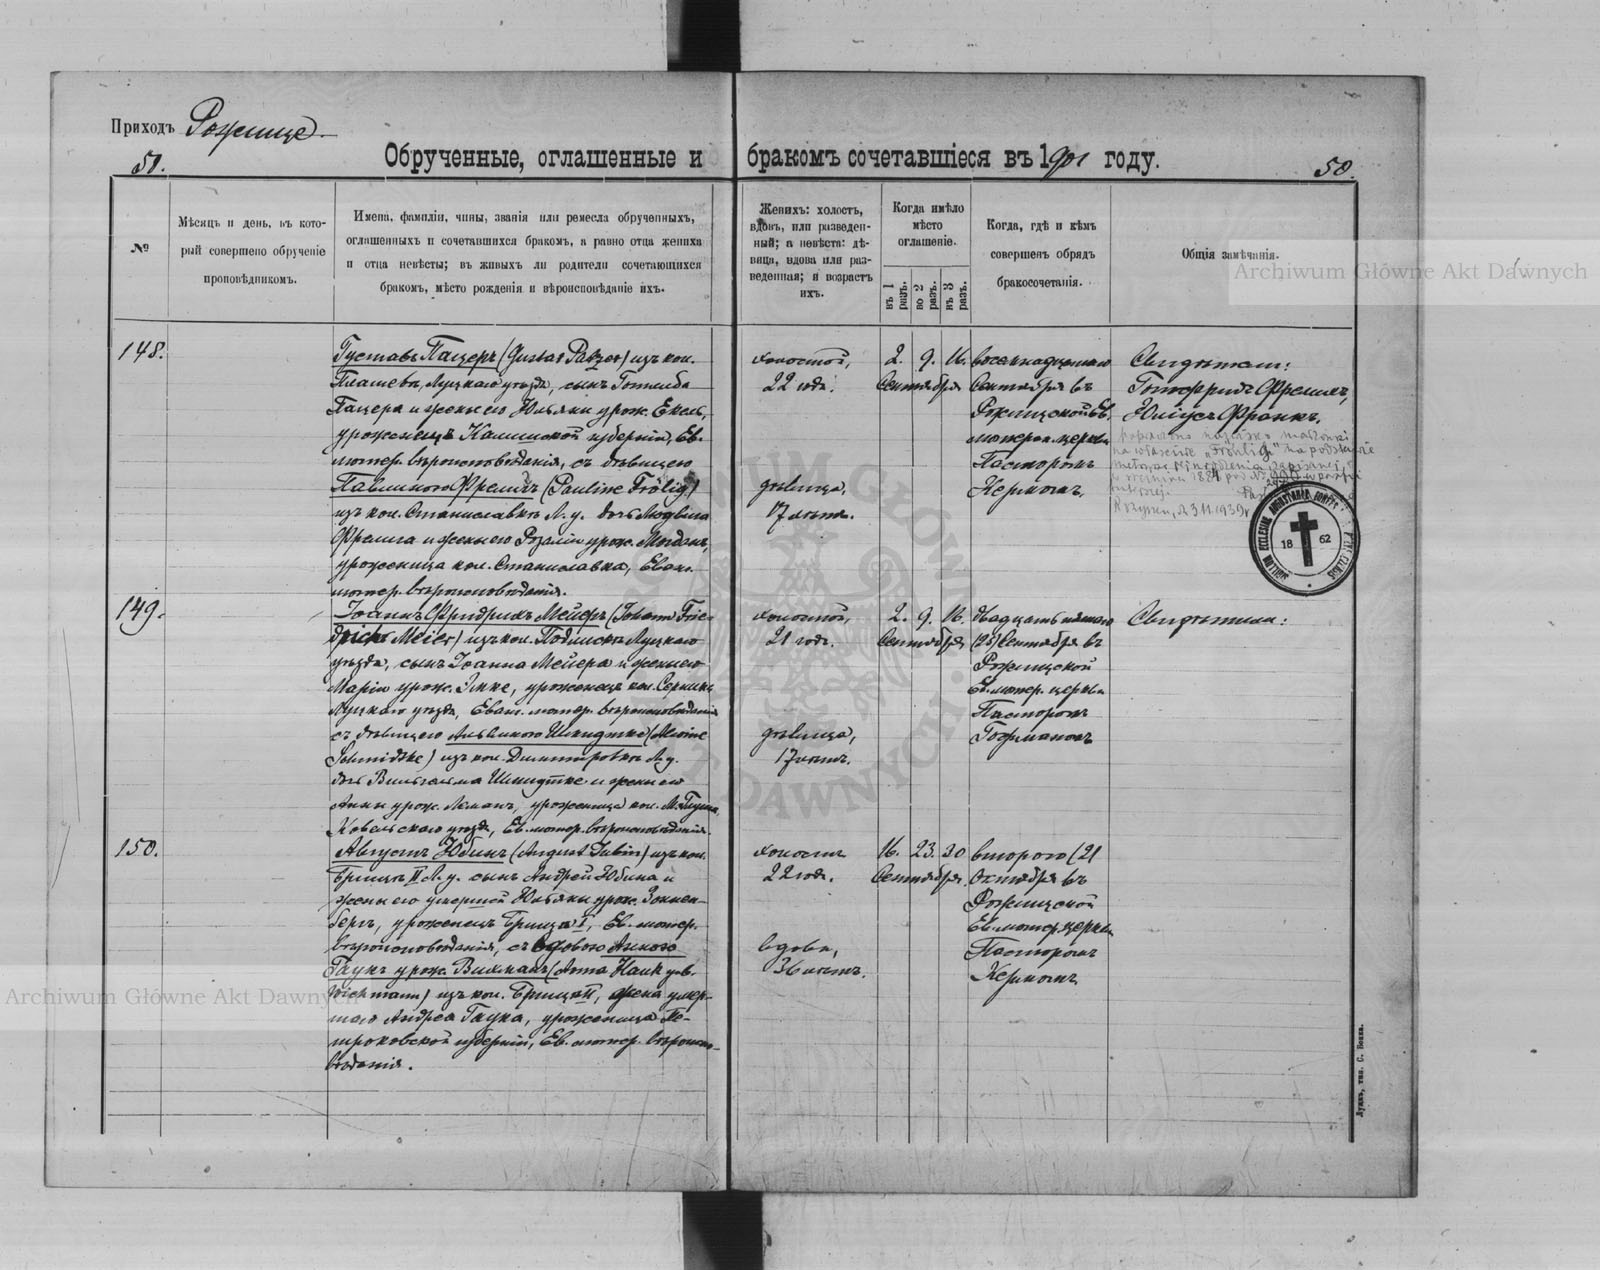 Приходъ Рожище
51.
Обрученные, оглашенные и бракомъ сочетавшіеся въ 1901 году.
50.
№
Мѣсяцъ и день, въ кото-
рый совершено обрученіе
проповѣдникомъ.
Имена, фамиліи, чины, званія или ремесла обрученныхъ,
оглашенныхъ и сочетавшихся бракомъ, а равно отца жениха
и отца невѣсты; въ живыхъ ли родители сочетающихся
бракомъ, мѣсто рожденія и вѣроисповѣданіе ихъ.
Женихъ: холостъ,
вдовъ, или разведен-
ный; а невѣста: дѣ-
вица, вдова или раз-
веденная; и возрастъ
ихъ.
Когда имѣло
мѣсто
оглашеніе.
въ 1 разъ.
во 2 разъ.
въ 3 разъ.
Когда, гдѣ и кѣмъ
совершенъ обрядъ
бракосочетанія.
Общія замѣчанія.
Archiwum Główne Akt Dawnych
148.
Густавъ Пацеръ (Gustav Patzer) изъ кол.
Плашева, Луцкаго уѣзда, сынъ Готлиба
Пацера и жены его Юльяны урож. Екель,
уроженецъ Калишской губерніи, Ев.
лютер. вѣроисповѣданія, съ дѣвицею
Павлиною Фрелихъ (Pauline Frölig)
изъ кол. Станиславка Л. у. дочь Людвига
Фрелига и жены его Розаліи урож. Магданъ,
уроженица кол. Станиславка, Еван.
лютер. вѣроисповѣданія.
холостой,
22 года.
дѣвица,
17 лѣтъ.
2. 9. 16.
Сентября
восемнадцатаго
Сентября въ
Рожищской Ев.
лютеран. церкви
Пасторомъ
Керномъ.
Свидѣтели:
Готфридъ Фрелихъ,
Юліусъ Франкъ.
na właściwe „Fröhlich” na podstawie
3.11.1939 r
18 62
149.
Іоаннъ Фридрихъ Мейеръ (Johann Frie-
drich Meier) изъ кол. Подлиски Луцкаго
уѣзда, сынъ Іоанна Мейера и жены его
Маріи урож. Эмке, уроженецъ кол. Серники
Луцкаго уѣзда, Еван. лютер. вѣроисповѣданія
съ дѣвицею Альвиною Шмидтке (Alwine
Schmidtke) изъ кол. Димитровка Л. у.
дочь Вильгельма Шмидтке и жены его
Анны урож. Леманъ, уроженица кол. М. Глуша,
Ковельскаго уѣзда, Ев. лютер. вѣроисповѣданія.
холостой,
21 годъ.
дѣвица,
17 лѣтъ.
2. 9. 16.
Сентября
двадцать пятаго
(25) Сентября въ
Рожищской
Ев. лютер. церкви
Пасторомъ
Гофманомъ
Свидѣтели:
150.
Августъ Юбинъ (August Jubin) изъ кол.
Брищъ II Л. у. сынъ Андрей Юбина и
жены его умершей Юльяны урож. Зоннен-
бергъ, уроженецъ Брища I, Ев. лютер.
вѣроисповѣданія, съ вдовою Анною
Гаукъ урож. Вихманъ (Anna Hauk geb.
Wichmann) изъ кол. Брищъ II, жена умер-
шаго Андрея Гаука, уроженица Пе-
троковской губерніи, Ев. лютер. вѣроиспо-
вѣданія.
холостъ
22 года.
вдова,
36 лѣтъ.
16. 23. 30
Сентября
второго (2)
Октября въ
Рожищской
Ев. лютер. церкви
Пасторомъ
Керномъ
Archiwum Główne Akt Dawnych
Луцкъ, тип. С. Бокка.